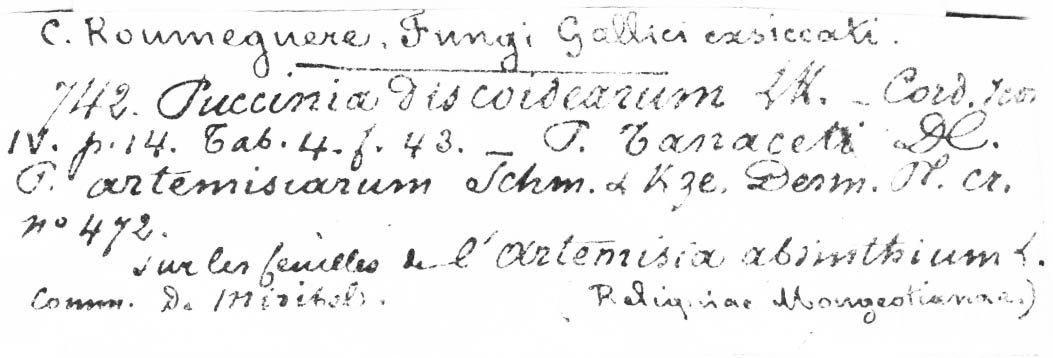 C. Roumeguere. Fungi Gallici exsiccati.
742. Puccinia discoidearum LK. - Cord. Icon
IV. p. 14. Tab. 4. f. 43. - P. Tanaceti DC.
P. artemisiarum Schm. & Kze. Desm. Pl. cr.
no 472.
Sur les feuilles de l'Artemisia absinthium L.
Comm. Dr (Reliquiae Mougeotianae.)